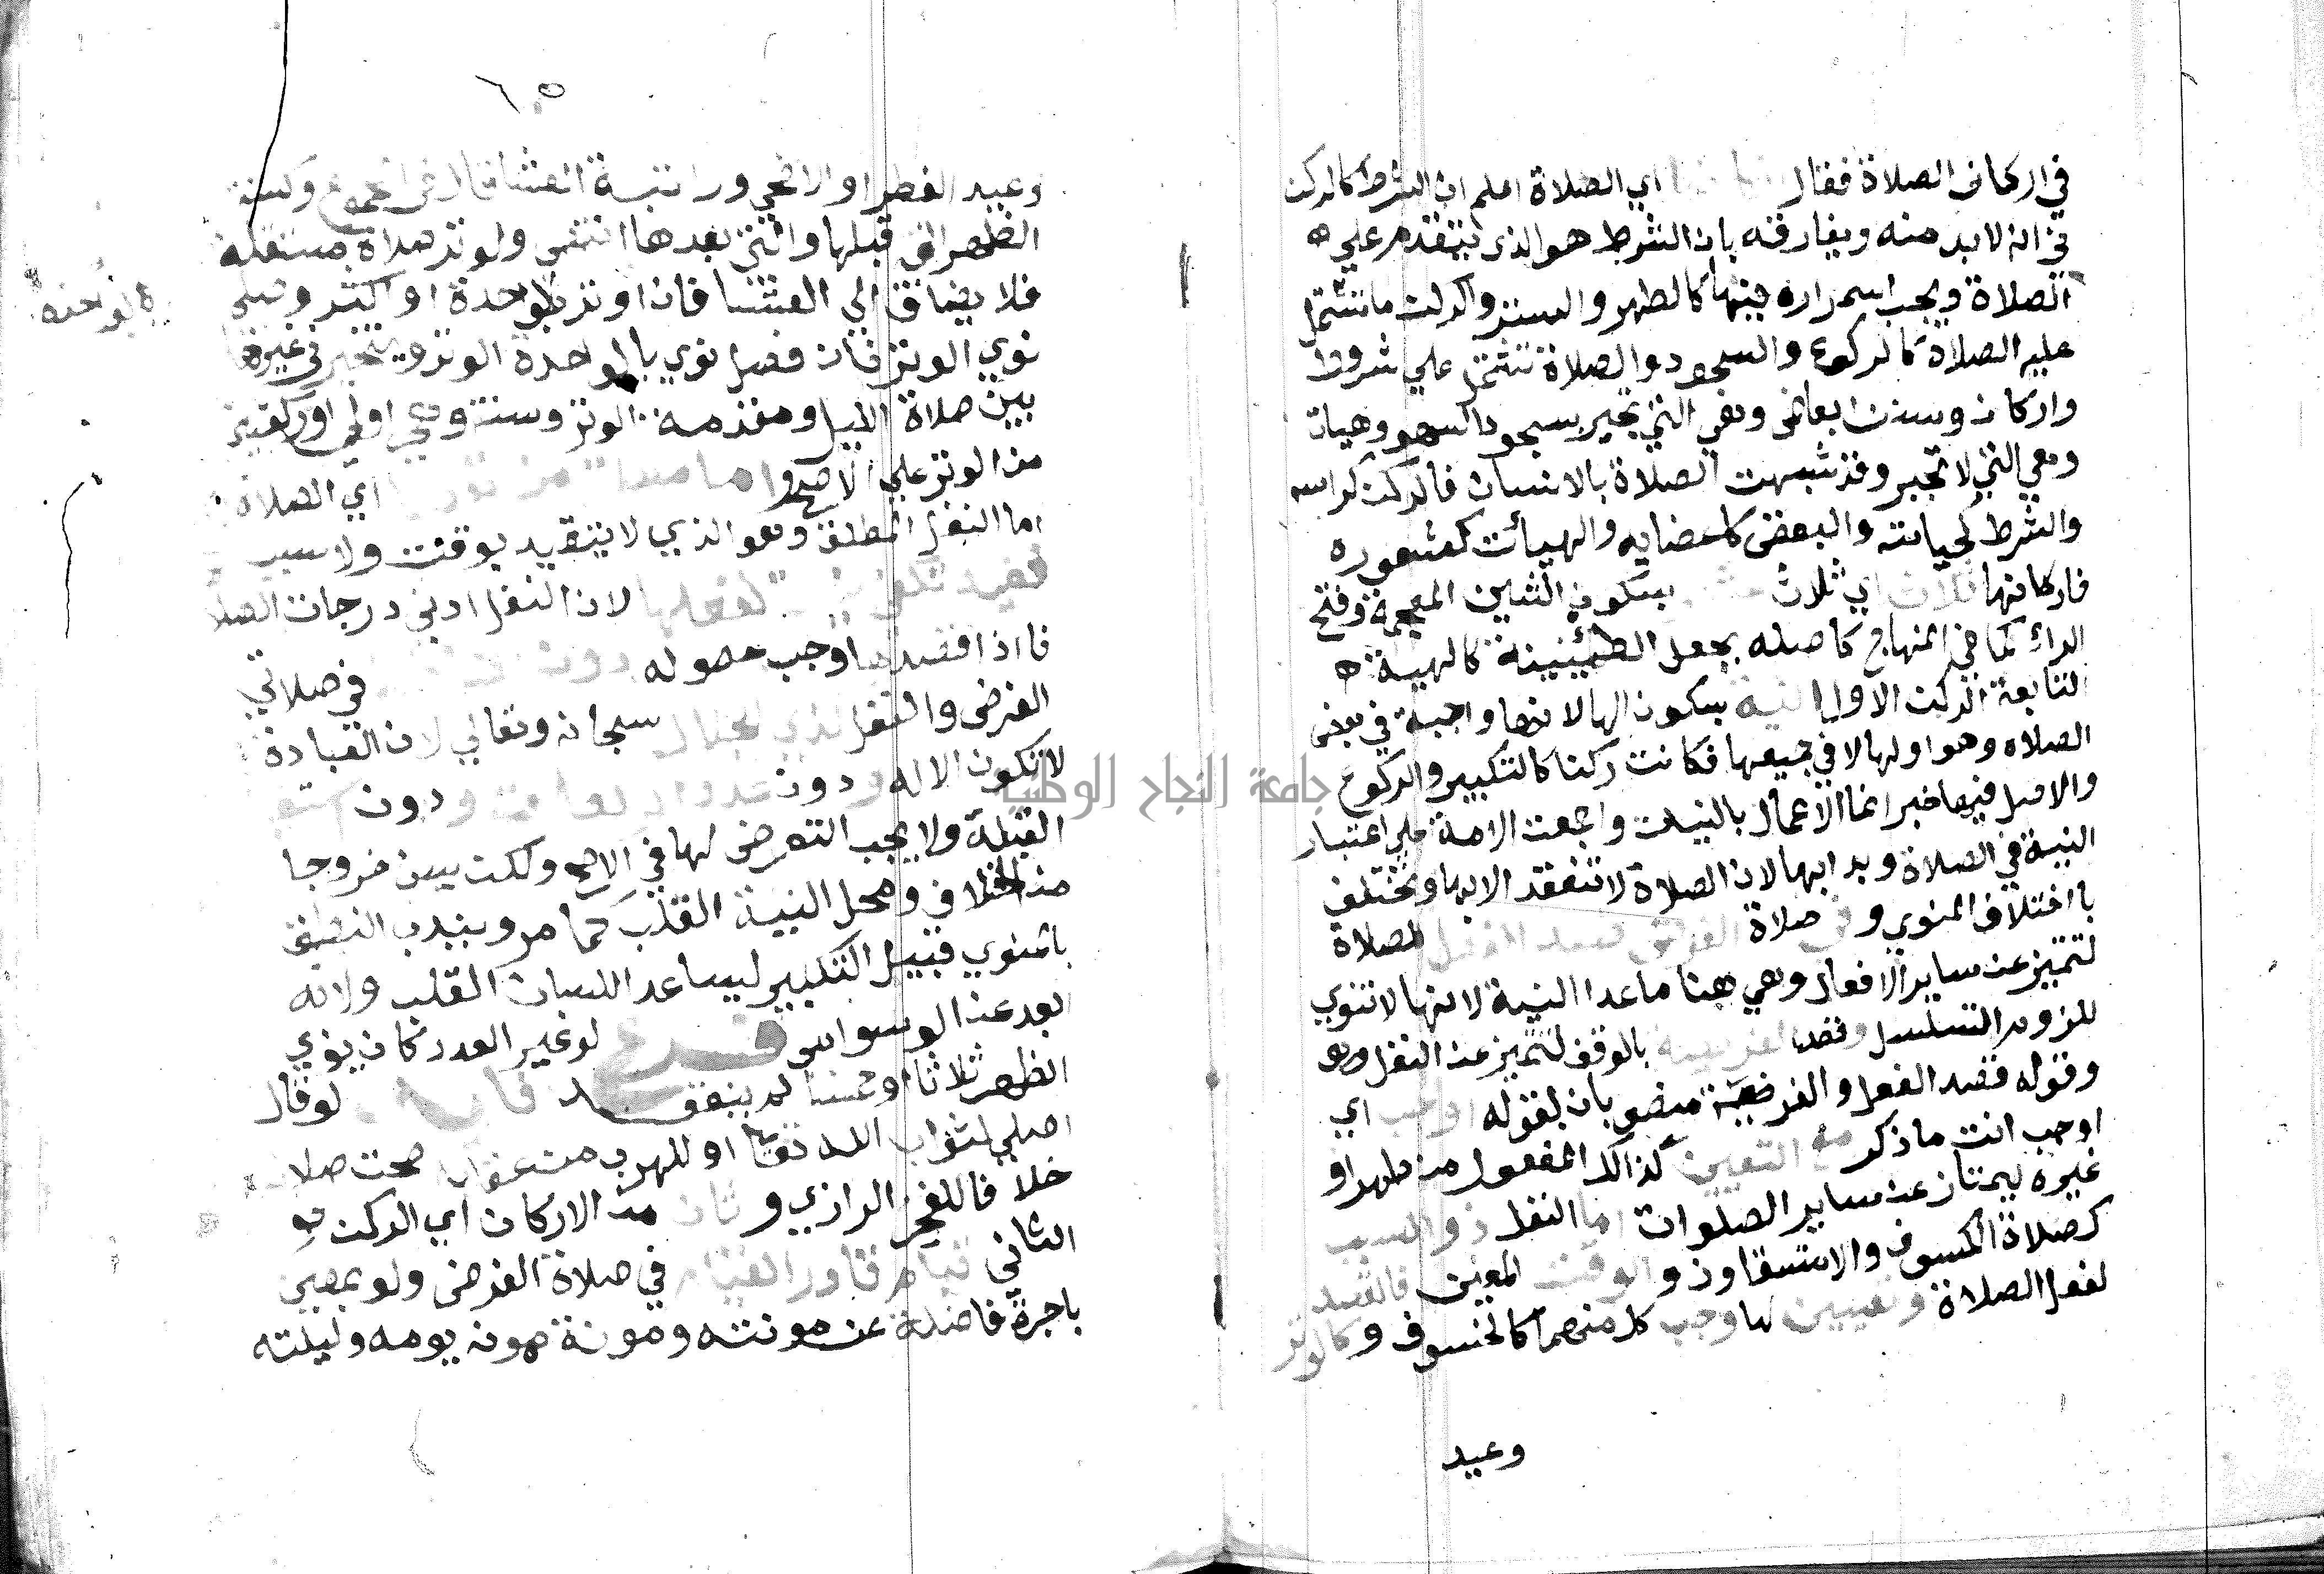 في اركان الصلاة فقال اي الصلاة اعلم ان الشرط كالركن
في انه لا بد منه ويفارقه بان الشرط هو الذي يتقدم علي
الصلاة ويجب استمراره فيها كالطهر والستر والركن ما تشتمل
عليه الصلاة كالركوع والسجود والصلاة تشتمل علي شروط
واركان وسنن ابعاض وهي التي تجبر بسجود السهو وهيات
وهي التي لا تجبر وقد شبهت الصلاة بالانسان فالركن كراسه
والشرط كحياته والبعض كاعضايه والهيأت كشعوره
فاركانها ثلاث اي ثلاث بسكون الشين المعجمة وفتح
الراء كما في المنهاج كاصله بجعل الطمئنينة كالهيية
التابعة الركن الاول النية بسكون الها لانها واجبة في بعض
الصلاه وهو اولها لا في جميعها فكانت ركنا كالتكبير والركوع
والاصل فيها خبر انما الاعمال بالنيات واجمعت الامة علي اعتبار
النية في الصلاة وبدا بها لان الصلاة لا تنعقد الا بها وتختلف
با اختلاف المنوي وفي صلاة الفرض قصد الفعل للصلاة
لتتميز عن ساير الافعال وهي هنا ما عدا النية لانها لا تنوي
للزوم التسلسل وقصد الفرضية بالوقف لتتميز عن النفل
وقوله قصد الفعل والفرضية منصوبان بقوله اوجب اي
اوجب انت ما ذكر مع التعيين كذالك المفعول من ظهر او
غيره ليمتاز عن ساير الصلوات اما النفل ذو السبب
كصلاة الكسوف والاستسقا وذو الوقت المعين فالقصد
لفعل الصلاة وتعيين لها وجب كل منهما كالخسوف وكالوتر
وعيد
٦٥
وعيد الفطر او الاضحي وراتبة العشا قال في المجموع وكسنة
الظهر التي قبلها والتي بعدها انتهى والوتر صلاة مستقلة
فلا يضاف الي العشا فان اوتر بواحدة او اكثر وصلي
بالواحدة
نوي الوتر فان فصل نوي بالواحدة الوتر ويتخير في غيرها
بين صلاة الليل ومقدمة الوتر وسنته وهي اولي او ركعتين
من الوتر علي الاصح واما اي الصلاة
اما النفل المطلق وهو الذي لا يتقيد بوقت ولا سبب
لفعلها لان النفل ادني درجات الصلا
فا اذا قصد ها وجب حصوله دون في صلاتي
الفرض والنفل سبحانه وتعالي لان العبادة
لا تكون الا له ودون عدد ودون
القبلة ولا يجب التعرض لها في الاصح ولكن يسن خروجا
من الخلاف ومحل النية القلب كما مر ويندب النطق
بالمنوي قبيل التكبير ليساعد اللسان القلب ولانه
ابعد عن الوسواس فرع لو غير العدد كان ينوي
الظهر ثلاثا او خمسا لم ينعقد لو قال
اصلي لثواب الله تعا او للهرب من عقابه صحت صلا
خلافا للفخر الرازي وثان من الاركان اي الركن
الثاني قيام قادر القيام في صلاة الفرض ولو بمعين
باجرة فاضلة عن مونته ومونة ممونه يومه وليلته
جامعة النجاح الوطنية